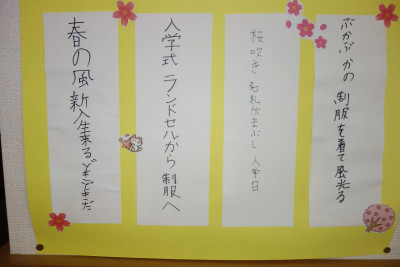 ぶかぶかの 制服を着て風光る
桜吹き 名札がまぶし 入学日
入学式 ランドセルから 制服へ
春の風 新入生来る どきどきだ